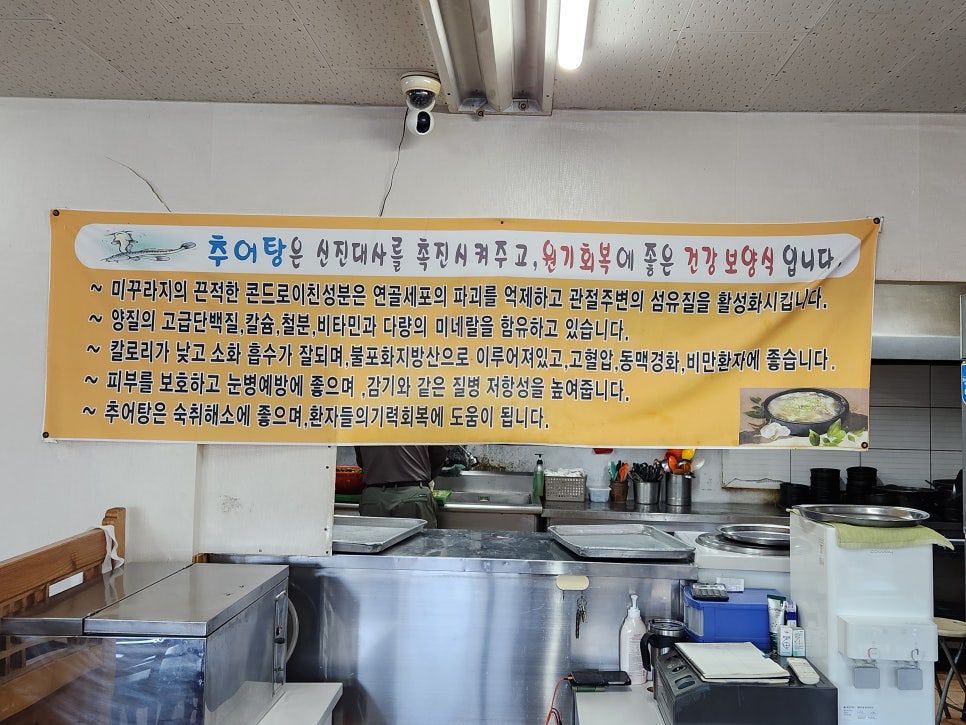 추어탕은 신진대사를 촉진시켜주고,원기회복에 좋은 건강 보양식 입니다.
~ 미꾸라지의 끈적한 콘드로이친성분은 연골세포의 파괴를 억제하고 관절주변의 섬유질을 활성화시킵니다.
~ 양질의 고급단백질,칼슘,철분,비타민과 다량의 미네랄을 함유하고 있습니다.
~ 칼로리가 낮고 소화 흡수가 잘되며,불포화지방산으로 이루어져있고,고혈압,동맥경화,비만환자에 좋습니다.
~ 피부를 보호하고 눈병예방에 좋으며 ,감기와 같은 질병 저항성을 높여줍니다.
~ 추어탕은 숙취해소에 좋으며,환자들의기력회복에 도움이 됩니다.